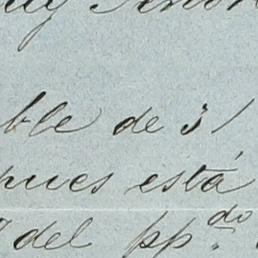 ble de 31
pues está
del pp.do